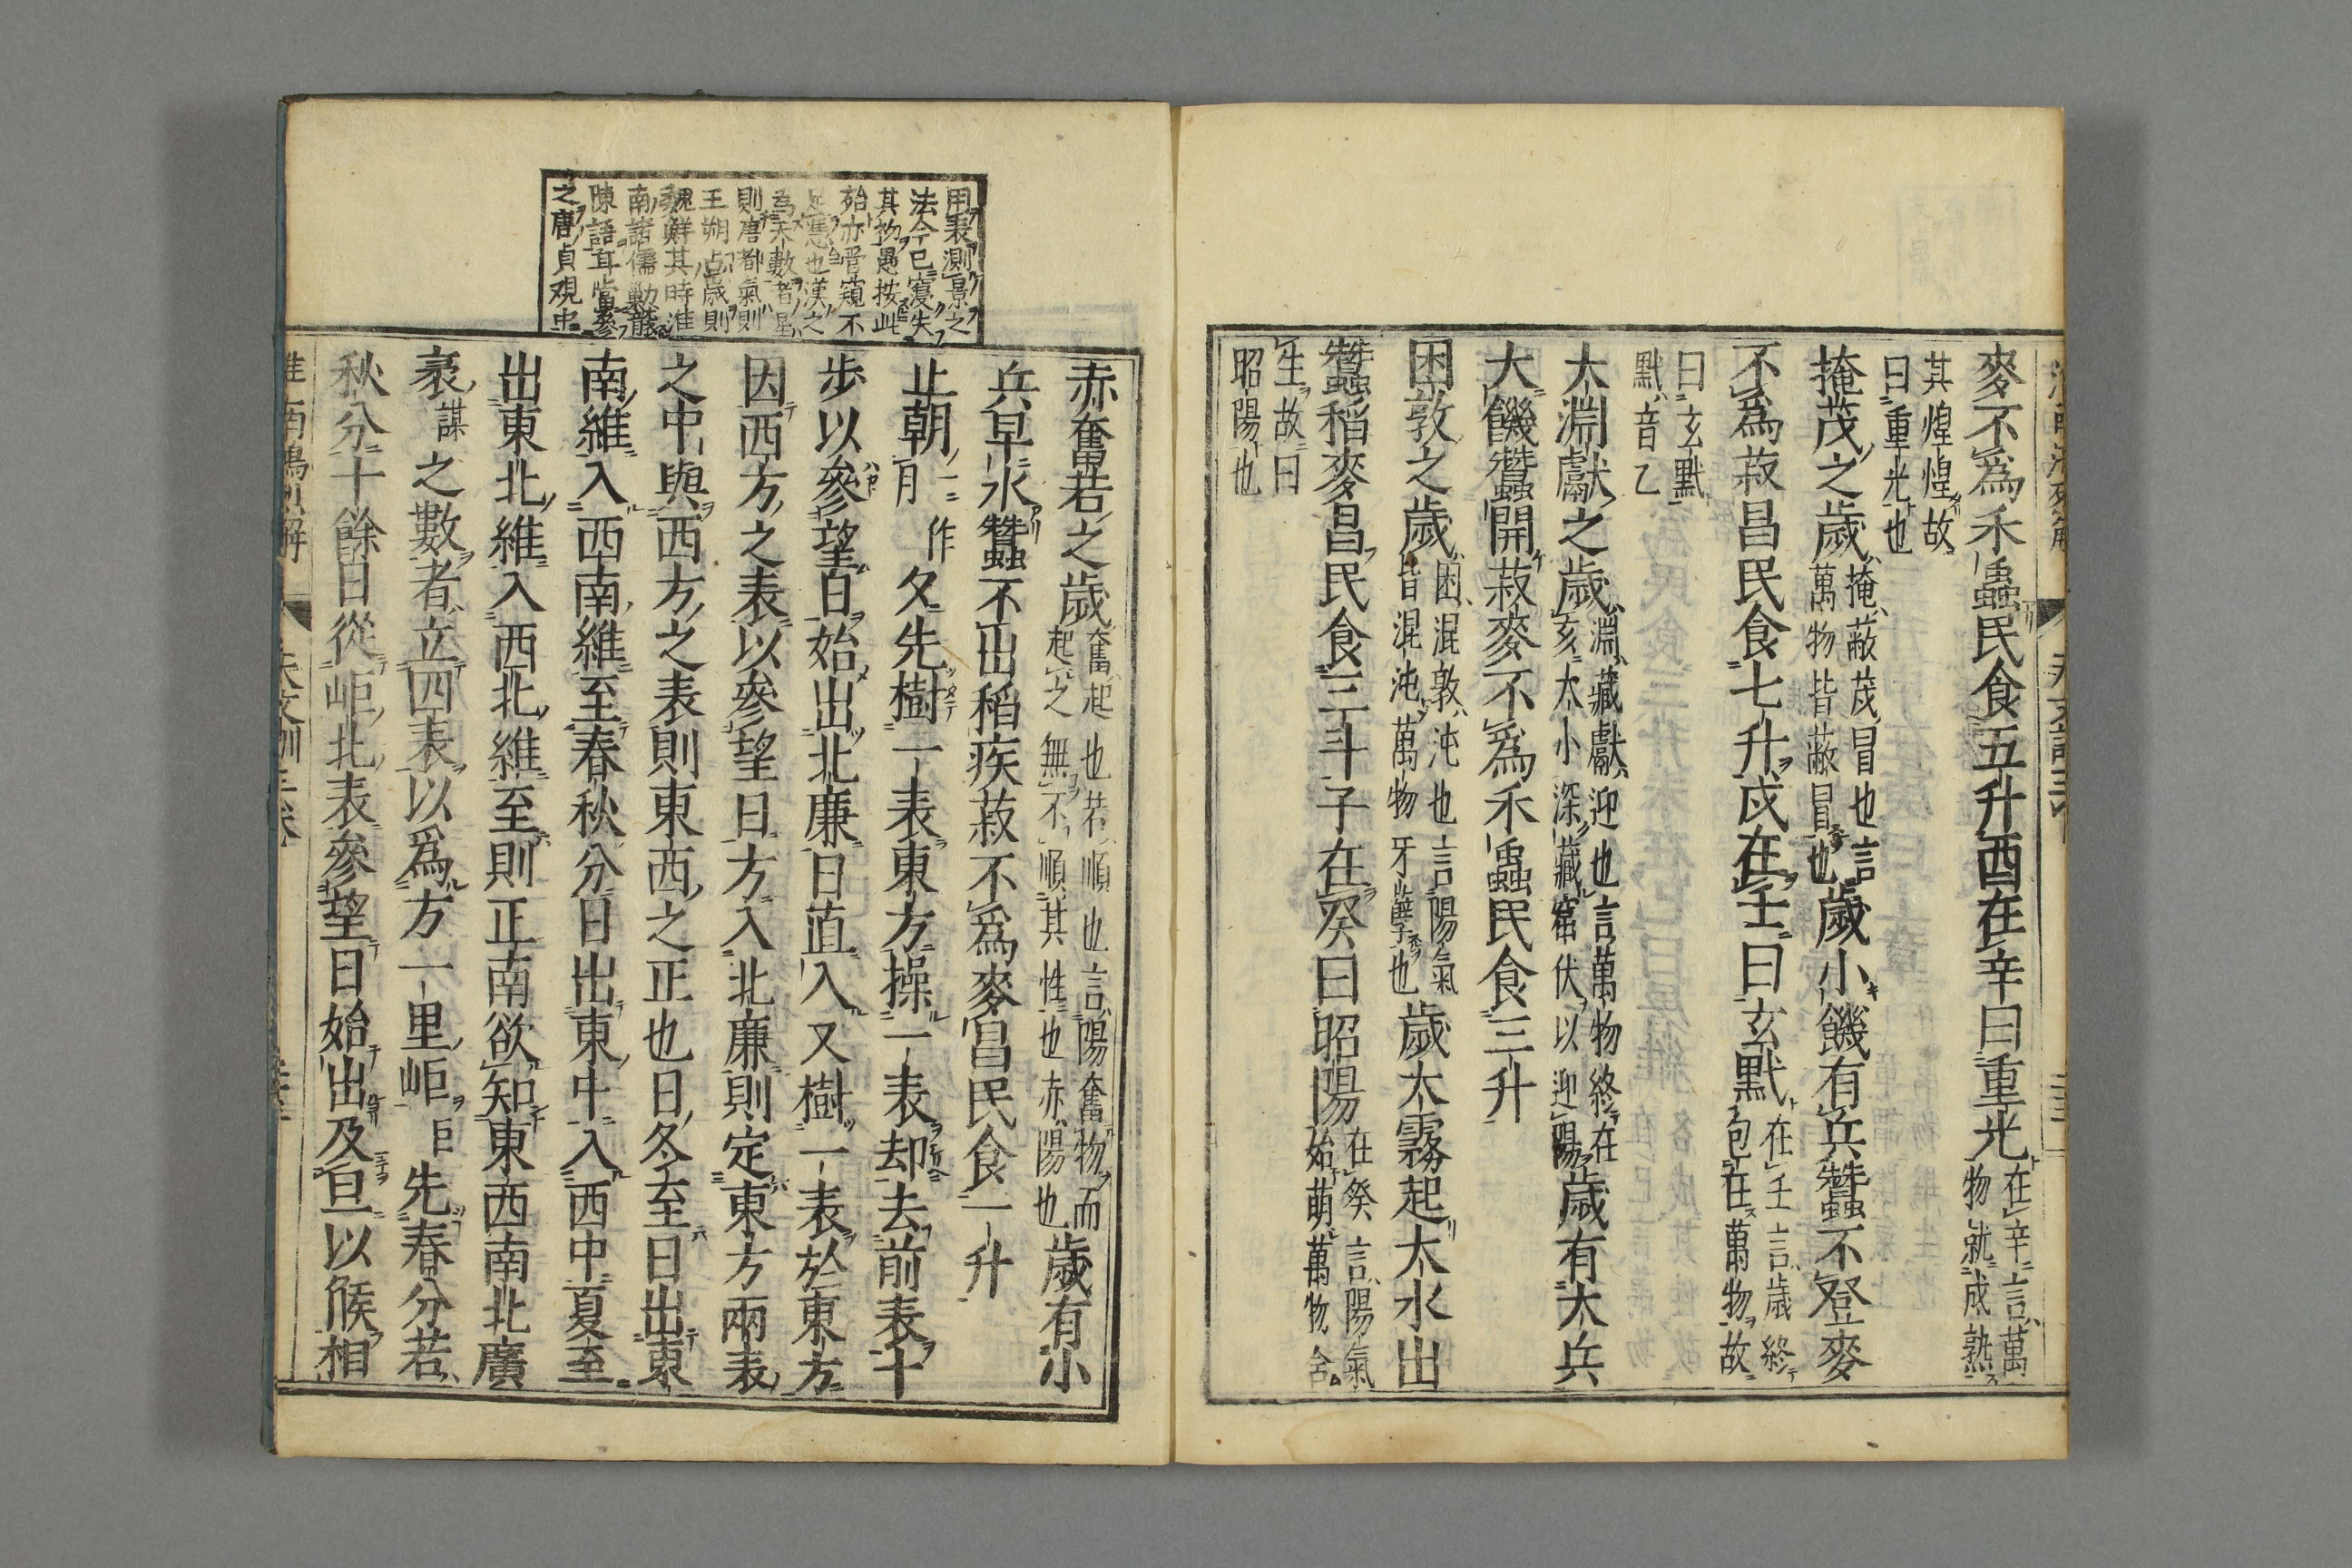 麥不爲禾蟲民食五升酉在辛曰重光在辛言萬物就成熟
其煌煌故曰重光也
掩茂之歲掩蔽茂冒也言萬物皆蔽冒也歲小饑有兵蠶不登麥
不爲菽昌民食七升戌在壬曰玄黓在壬言歲終包在萬物故
曰玄黓黓音乙
大淵獻之歲淵藏獻迎也言萬物終在亥大小深藏窟伏以迎陽歲有大兵
大饑蠶開菽麥不爲禾蟲民食三升
困敦之歲困混敦沌也言陽氣皆混沌萬物牙孽也歲大霧起大水出
蠶稻麥昌民食三斗子在癸曰昭陽在癸言陽氣始萌萬物含
生故曰昭陽也
用表測景之
法今已寖失
其物愚按此
殆亦管窺不
足憑也漢之
爲天數者星
則唐都氣則
王朔占歲則
魏鮮其時淮
南諸儒勦襲
陳語耳當參
之唐貞觀中
赤奮若之歲奮起也若順也言陽奮物而起之無不順其性也赤陽也歲有小
兵早水蠶不出稻疾菽不爲麥昌民食一升
止朝一作月夕先樹一表東方操一表却去前表十
步以參望日始出北廉日直入又樹一表於東方
因西方之表以參望日方入北廉則定東方兩表
之中與西方之表則東西之正也日冬至日出東
南維入西南維至春秋分日出東中入西中夏至
出東北維入西北維至則正南欲知東西南北廣
袤謀之數者立四表以爲方一里岠巨先春分若
秋分十餘日從岠北表參望日始出及旦以候相